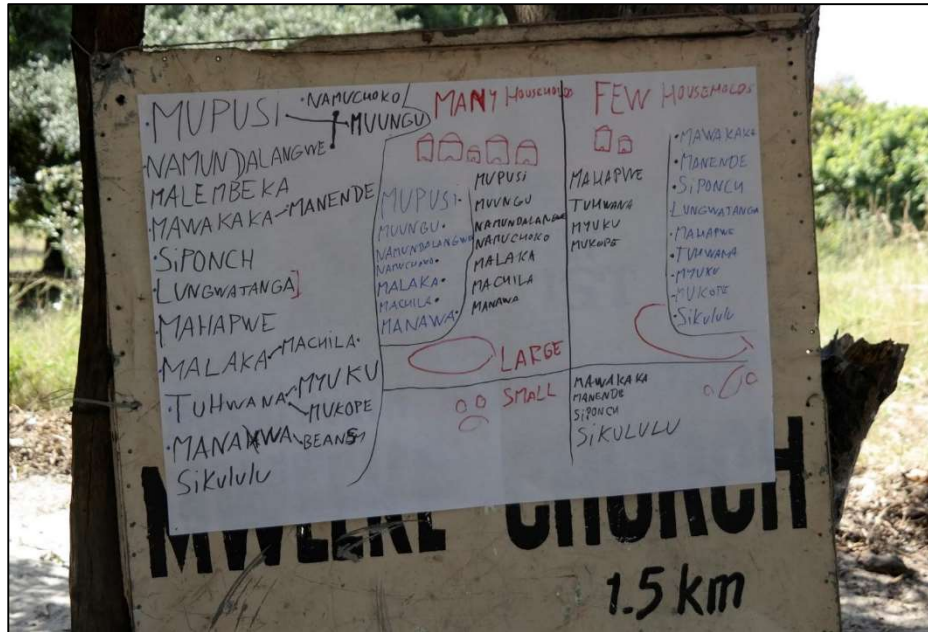 MUPUSI
NAMUCHOKO
MUUNGU
NAMUNDALANGWE
MALEMBEKA
MAWAKAKA MANENDE
SIPONCH
LUNGWATANGA]
MAHAPWE
MALAKA MACHILA
TUHWANA MYUKU
MUKOPE
MANAWA BEANS
SIKULULU
MANY HOUSEHOLDS
MUPUSI
MUUNGU
NAMUNDALANGWE
NAMUCHOKO
MALAKA
MACHILA
MANAWA
MUPUSI
MUUNGU
NAMUNDALANGWE
NAMUCHOKO
MALAKA
MACHILA
MANAWA
LARGE
SMALL
FEW HOUSEHOLDS
MAHAPWE
TUHWANA
MYUKU
MUKOPE
MAWAKAKA
MANENDE
SIPONCH
LUNGWATANGA
MAHAPWE
TUHWANA
MYUKU
MUKOPE
SIKULULU
MAWAKAKA
MANENDE
SIPONCH
SIKULULU
CHURCH
1.5 km